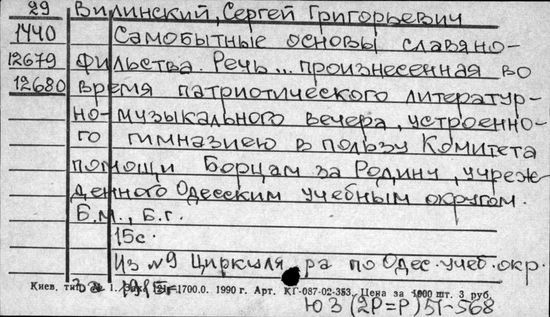 29 Вилинский, Сергей Григорьевич
1440 Самобытные основы славяно-
12679 фильства. Речь... произнесенная во
12680 время патриотического литератур-
но-музыкального вечера, устроенно-
го гимназиею в пользу Комитета
помощи Борцам за Родину, учреж-
денного Одесским учебным округом.
Б.М., Б.г.
15с.
Из №9 Циркуляра по Одес. учеб. окр.
за 1915г.
Киев. тип. 1. 1700.0. 1990 г. Арт. КГ-087-02-353. Цена за 1000 шт. 3 руб.
Ю3(2Р=Р)51-568